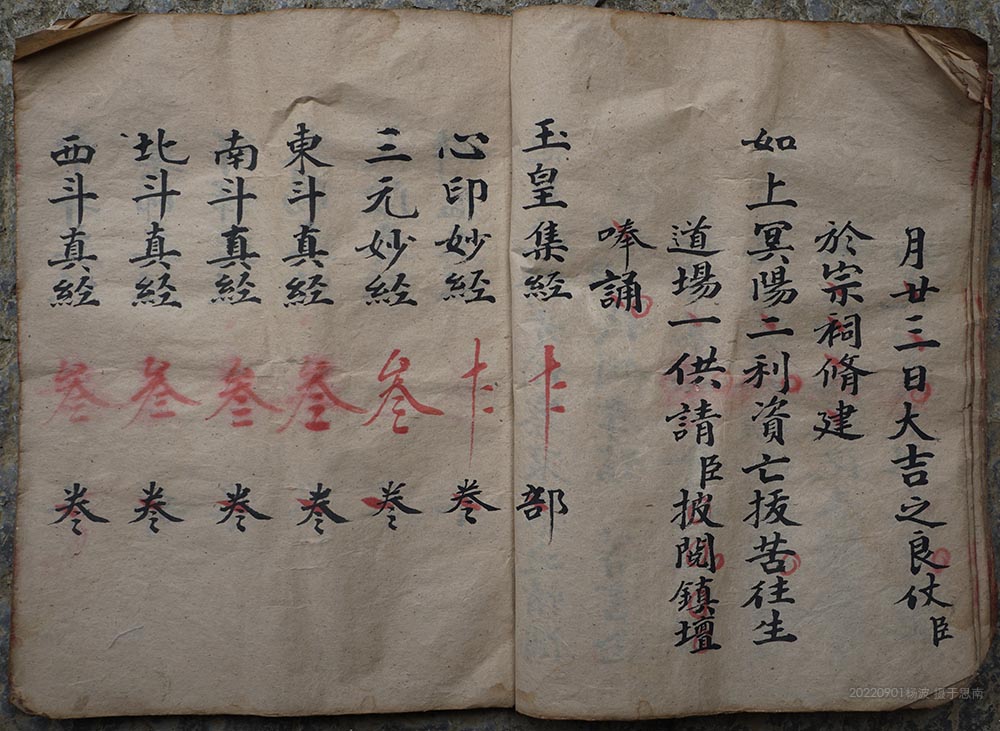 月廿三日大吉之良仗臣
於宗祠脩建
如上冥陽二利資亡拔苦往生
道場一供請臣披閱鎮壇
唪誦
玉皇集經 部
心印妙経 卷
三元妙経 叁 卷
東斗真経 叁 卷
南斗真経 叁 卷
北斗真経 叁 卷
西斗真経 叁 卷
20220901杨波 摄于思南